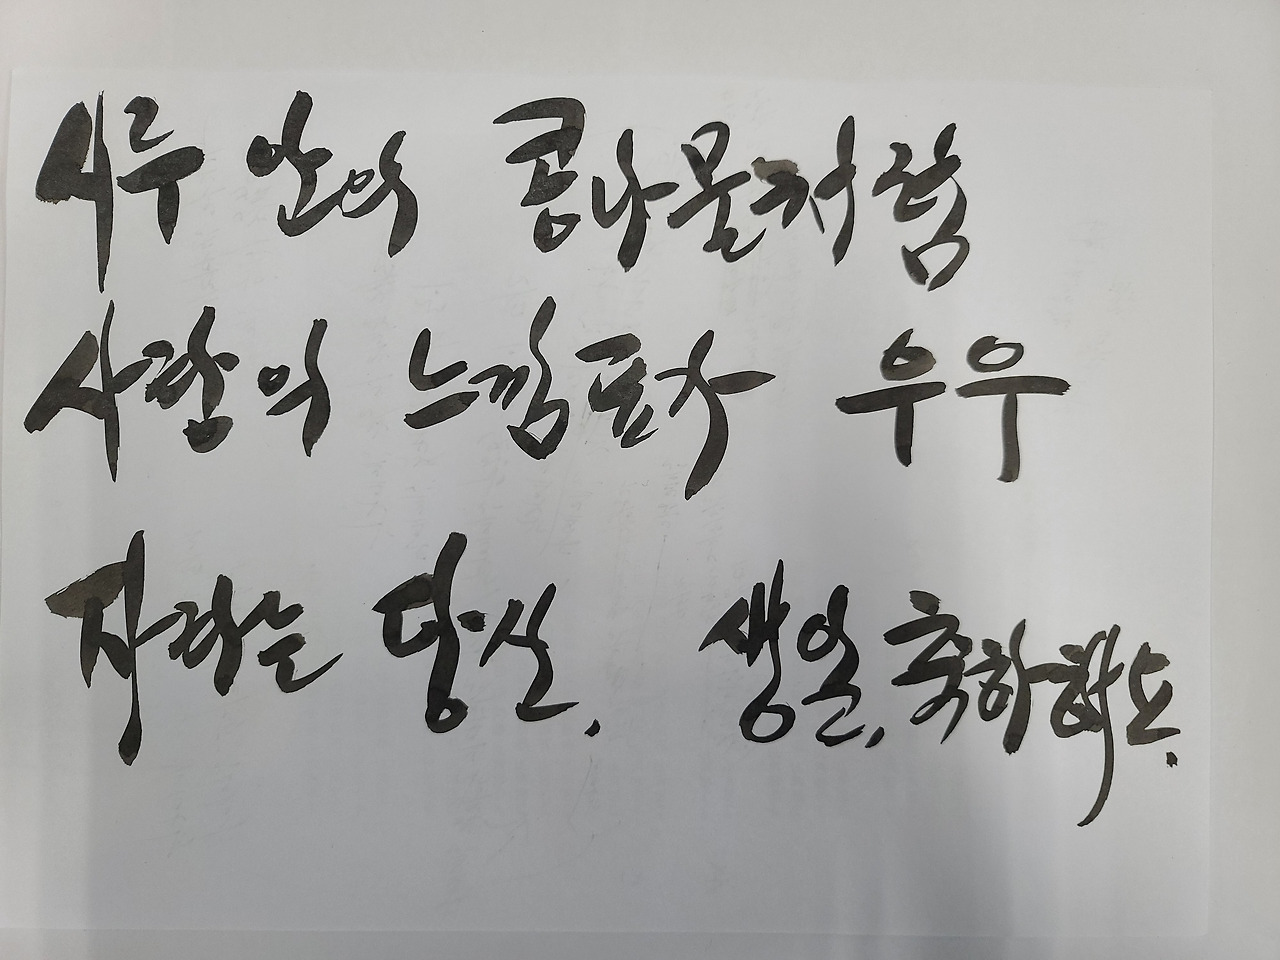 시루 안의 콩나물처럼
사랑의 느낌표가 우우
자라는 당신. 생일, 축하해요.